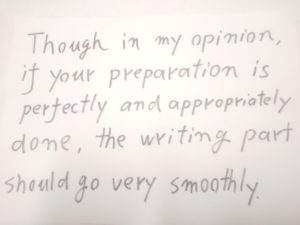 Though in my opinion,
if your preparation is
perfectly and appropriately
done, the writing part
should go very smoothly.